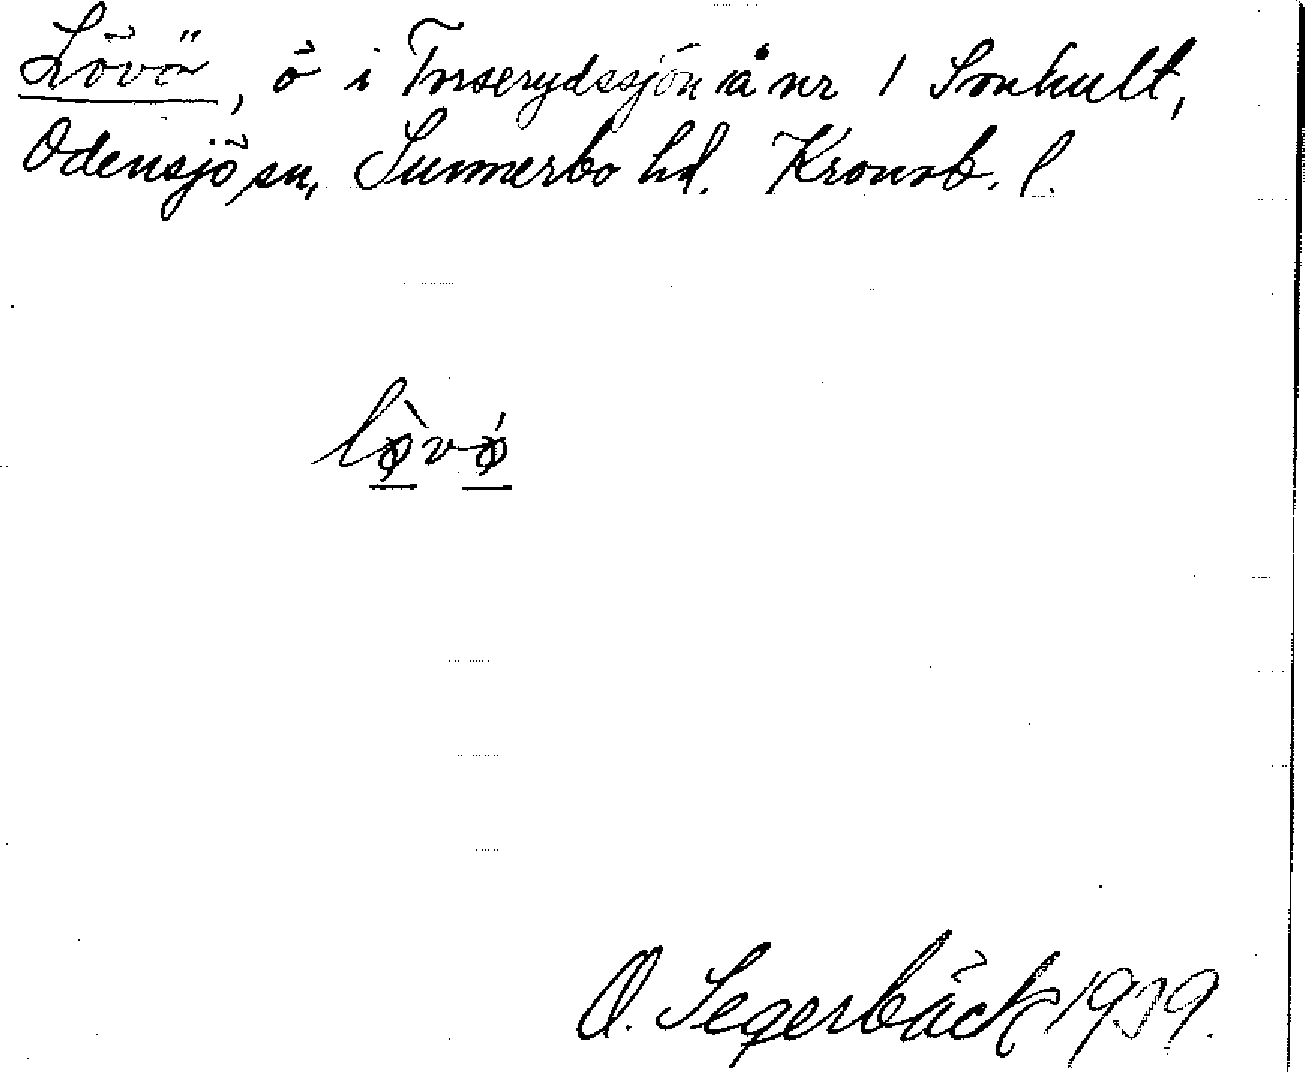 Lövö, ö i Torserydssjön å nr 1 Sonhult,
Odensjö sn, Sunnerbo hd. Kronob. l.
lø̀vǿ
O. Segerbäck 1939.